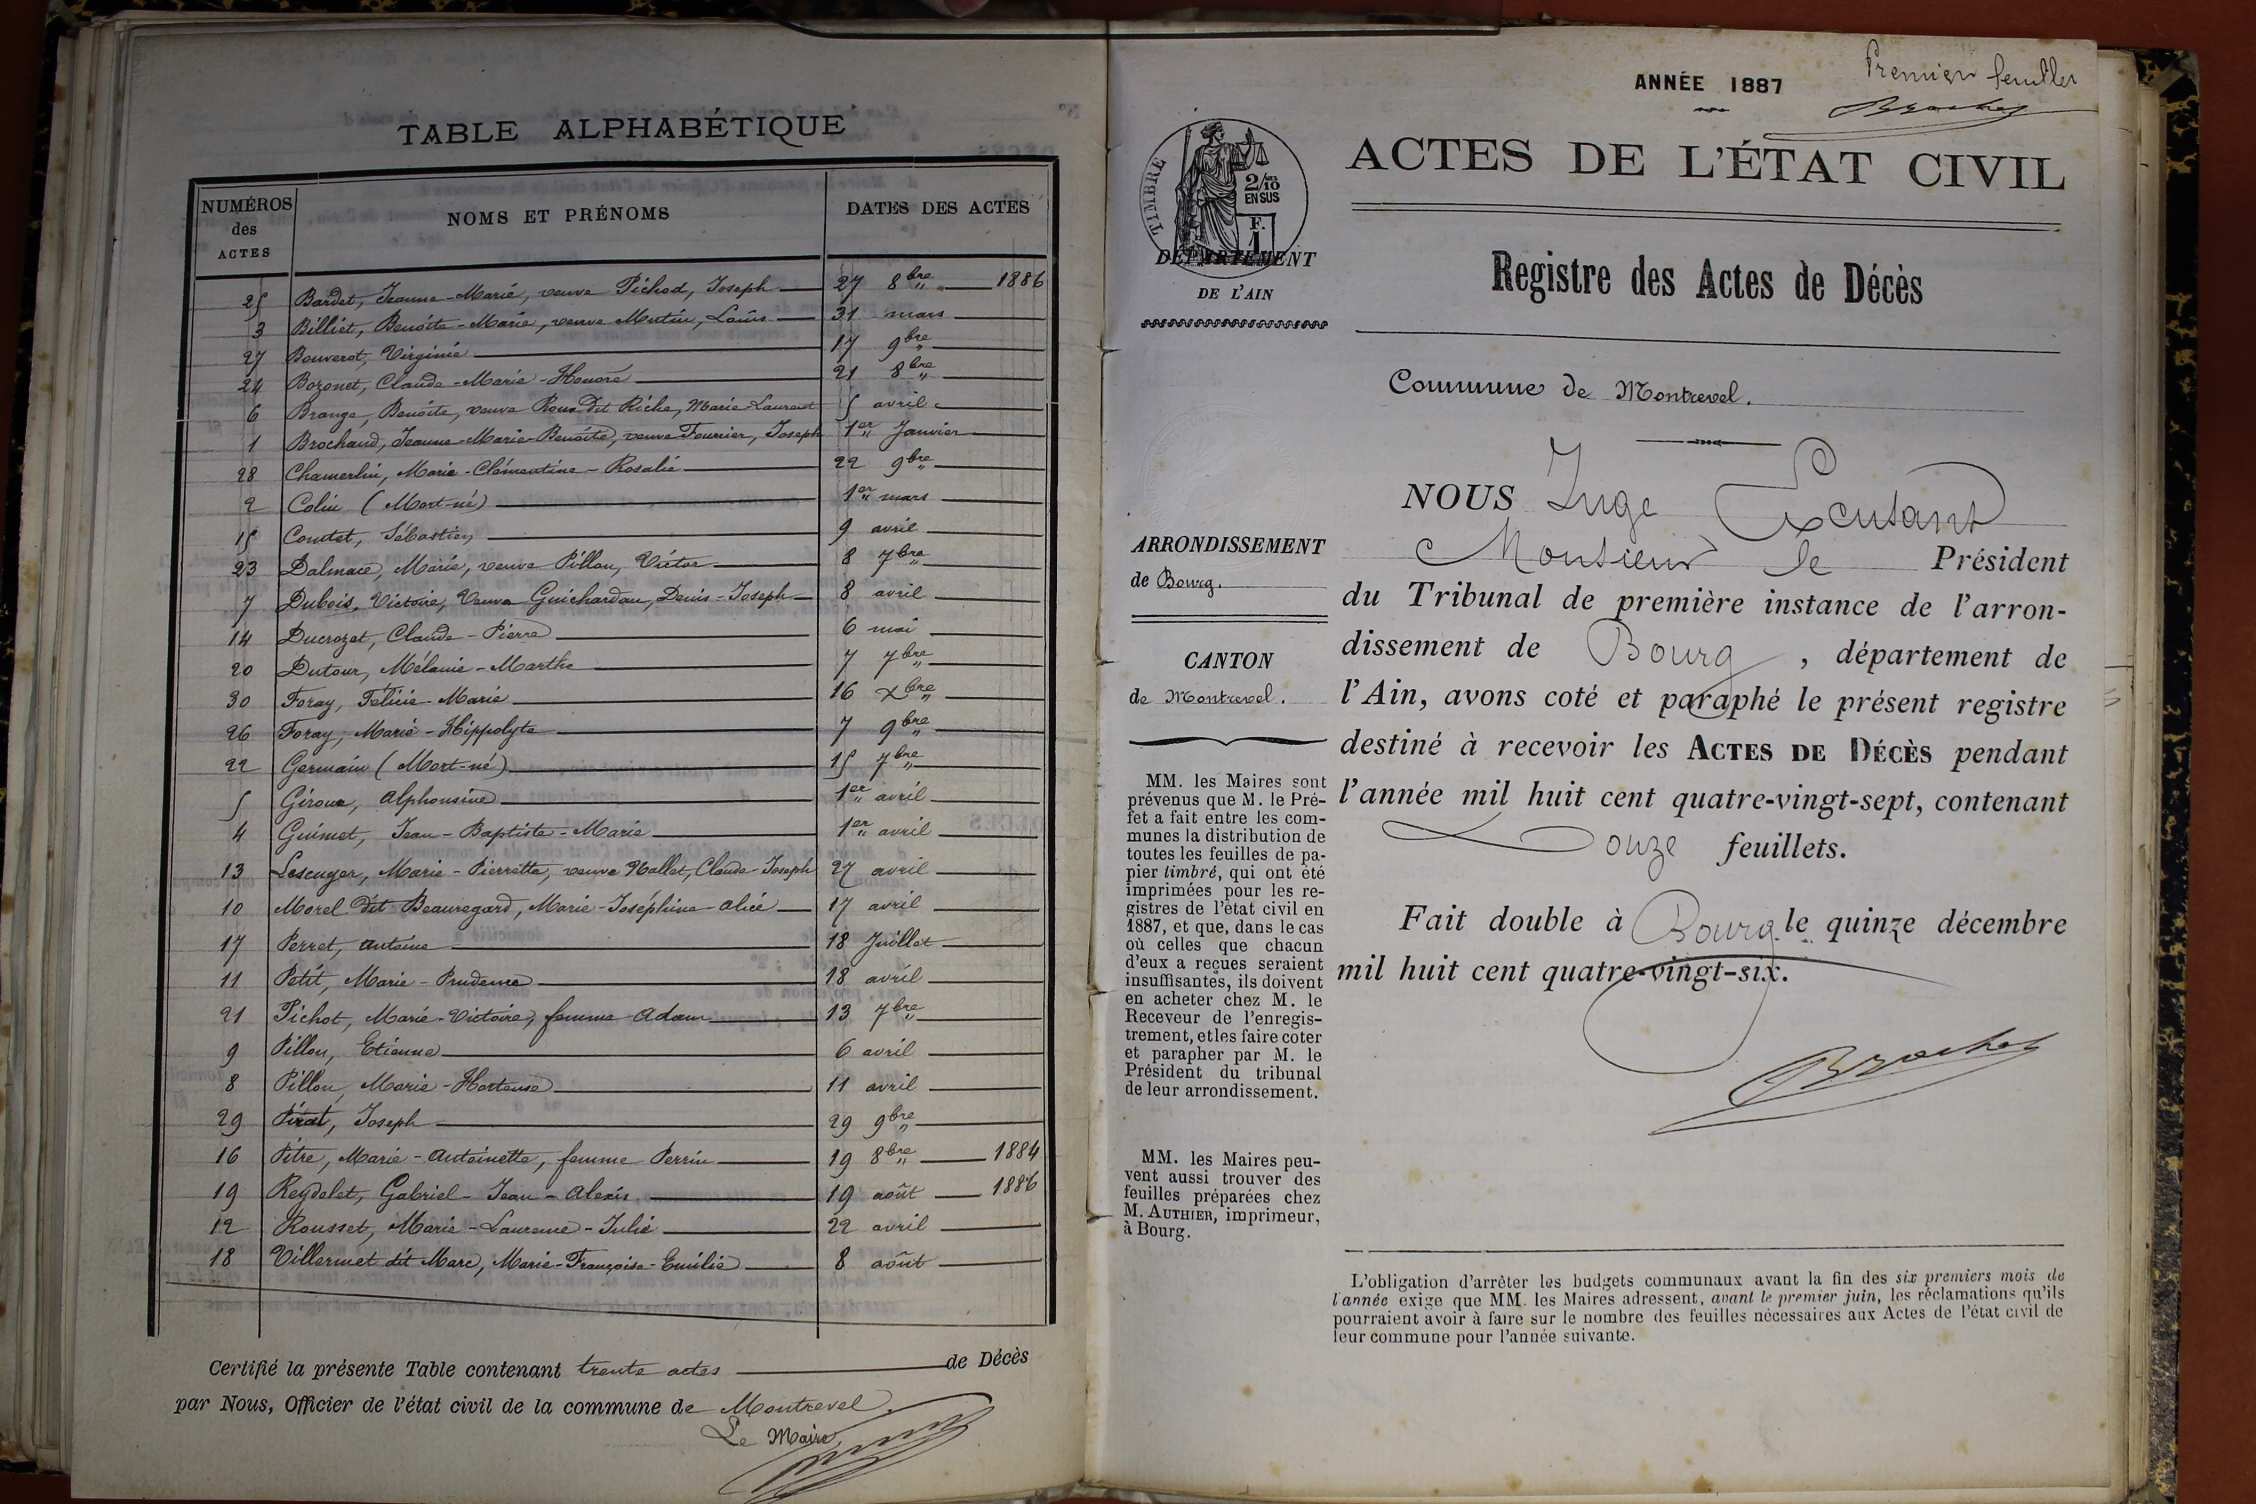 TABLE ALPHABÉTIQUE
NUMÉROS des ACTES
NOMS ET PRÉNOMS
DATES DES ACTES
25 Bardet, Jeanne-Marie, veuve Pichod, Joseph 27 8bre 1886
3 Billiet, Benoîte-Marie, veuve Mutin, Louis 31 mars
27 Bouverot, Virginie 17 9bre
24 Bozonet, Claude-Marie-Honoré 21 8bre
6 Brange, Benoîte, veuve Roux dit Riche, Marie Laurent 5 avril
1 Brochand, Jeanne-Marie-Benoîte, veuve Fournier, Joseph 1er Janvier
28 Chamerlin, Marie-Clémentine-Rosalie 22 9bre
2 Colin (Mort-né) 1er mars
15 Coutet, Sébastien 9 avril
23 Dalmace, Marie, veuve Pillon, Victor 8 7bre
7 Dubois, Victoire, Veuve Guichardan, Denis-Joseph 8 avril
14 Ducrozet, Claude-Pierre 6 mai
20 Dutour, Mélanie-Marthe 7 7bre
30 Foray, Félicie-Marie 16 Xbre
26 Foray, Marie-Hippolyte 7 9bre
22 Germain (Mort-né) 15 7bre
5 Giroux, Alphonsine 1er avril
4 Guimet, Jean-Baptiste-Marie 1er avril
13 Lescuyer, Marie-Pierrette, veuve Nallet, Claude-Joseph 27 avril
10 Morel dit Beauregard, Marie-Joséphine-Alice 17 avril
17 Perret, Antoine 18 Juillet
11 Petit, Marie-Prudence 18 avril
21 Pichot, Marie-Victoire, femme Adam 13 7bre
9 Pillon, Etienne 6 avril
8 Pillon, Marie-Hortense 11 avril
29 Pirat, Joseph 29 9bre
16 Pitre, Marie-Antoinette, femme Perrin 19 8bre 1884
19 Reydelet, Gabriel-Jean-Alexis 19 août 1886
12 Rousset, Marie-Laurence-Julie 22 avril
18 Villermet dit Marc, Marie-Françoise-Emilie 8 août
Certifié la présente Table contenant trente actes de Décès
par Nous, Officier de l'état civil de la commune de Montrevel.
Le Maire,
Premier feuillet
Brochet
ANNÉE 1887
ACTES DE L'ÉTAT CIVIL
TIMBRE
2/10 EN SUS
F. 1
DÉPARTEMENT
DE L'AIN
Registre des Actes de Décès
Commune de Montrevel.
ARRONDISSEMENT
de Bourg.
CANTON
de Montrevel.
MM. les Maires sont
prévenus que M. le Pré-
fet a fait entre les com-
munes la distribution de
toutes les feuilles de pa-
pier timbré, qui ont été
imprimées pour les re-
gistres de l'état civil en
1887, et que, dans le cas
où celles que chacun
d'eux a reçues seraient
insuffisantes, ils doivent
en acheter chez M. le
Receveur de l'enregis-
trement, et les faire coter
et parapher par M. le
Président du tribunal
de leur arrondissement.
MM. les Maires peu-
vent aussi trouver des
feuilles préparées chez
M. AUTHIER, imprimeur,
à Bourg.
NOUS Juge
Monsieur le Président
du Tribunal de première instance de l'arron-
dissement de Bourg, département de
l'Ain, avons coté et paraphé le présent registre
destiné à recevoir les ACTES DE DÉCÈS pendant
l'année mil huit cent quatre-vingt-sept, contenant
Douze feuillets.
Fait double à Bourg le quinze décembre
mil huit cent quatre-vingt-six.
Brochet
L'obligation d'arrêter les budgets communaux avant la fin des six premiers mois de
l'année exige que MM. les Maires adressent, avant le premier juin, les réclamations qu'ils
pourraient avoir à faire sur le nombre des feuilles nécessaires aux Actes de l'état civil de
leur commune pour l'année suivante.